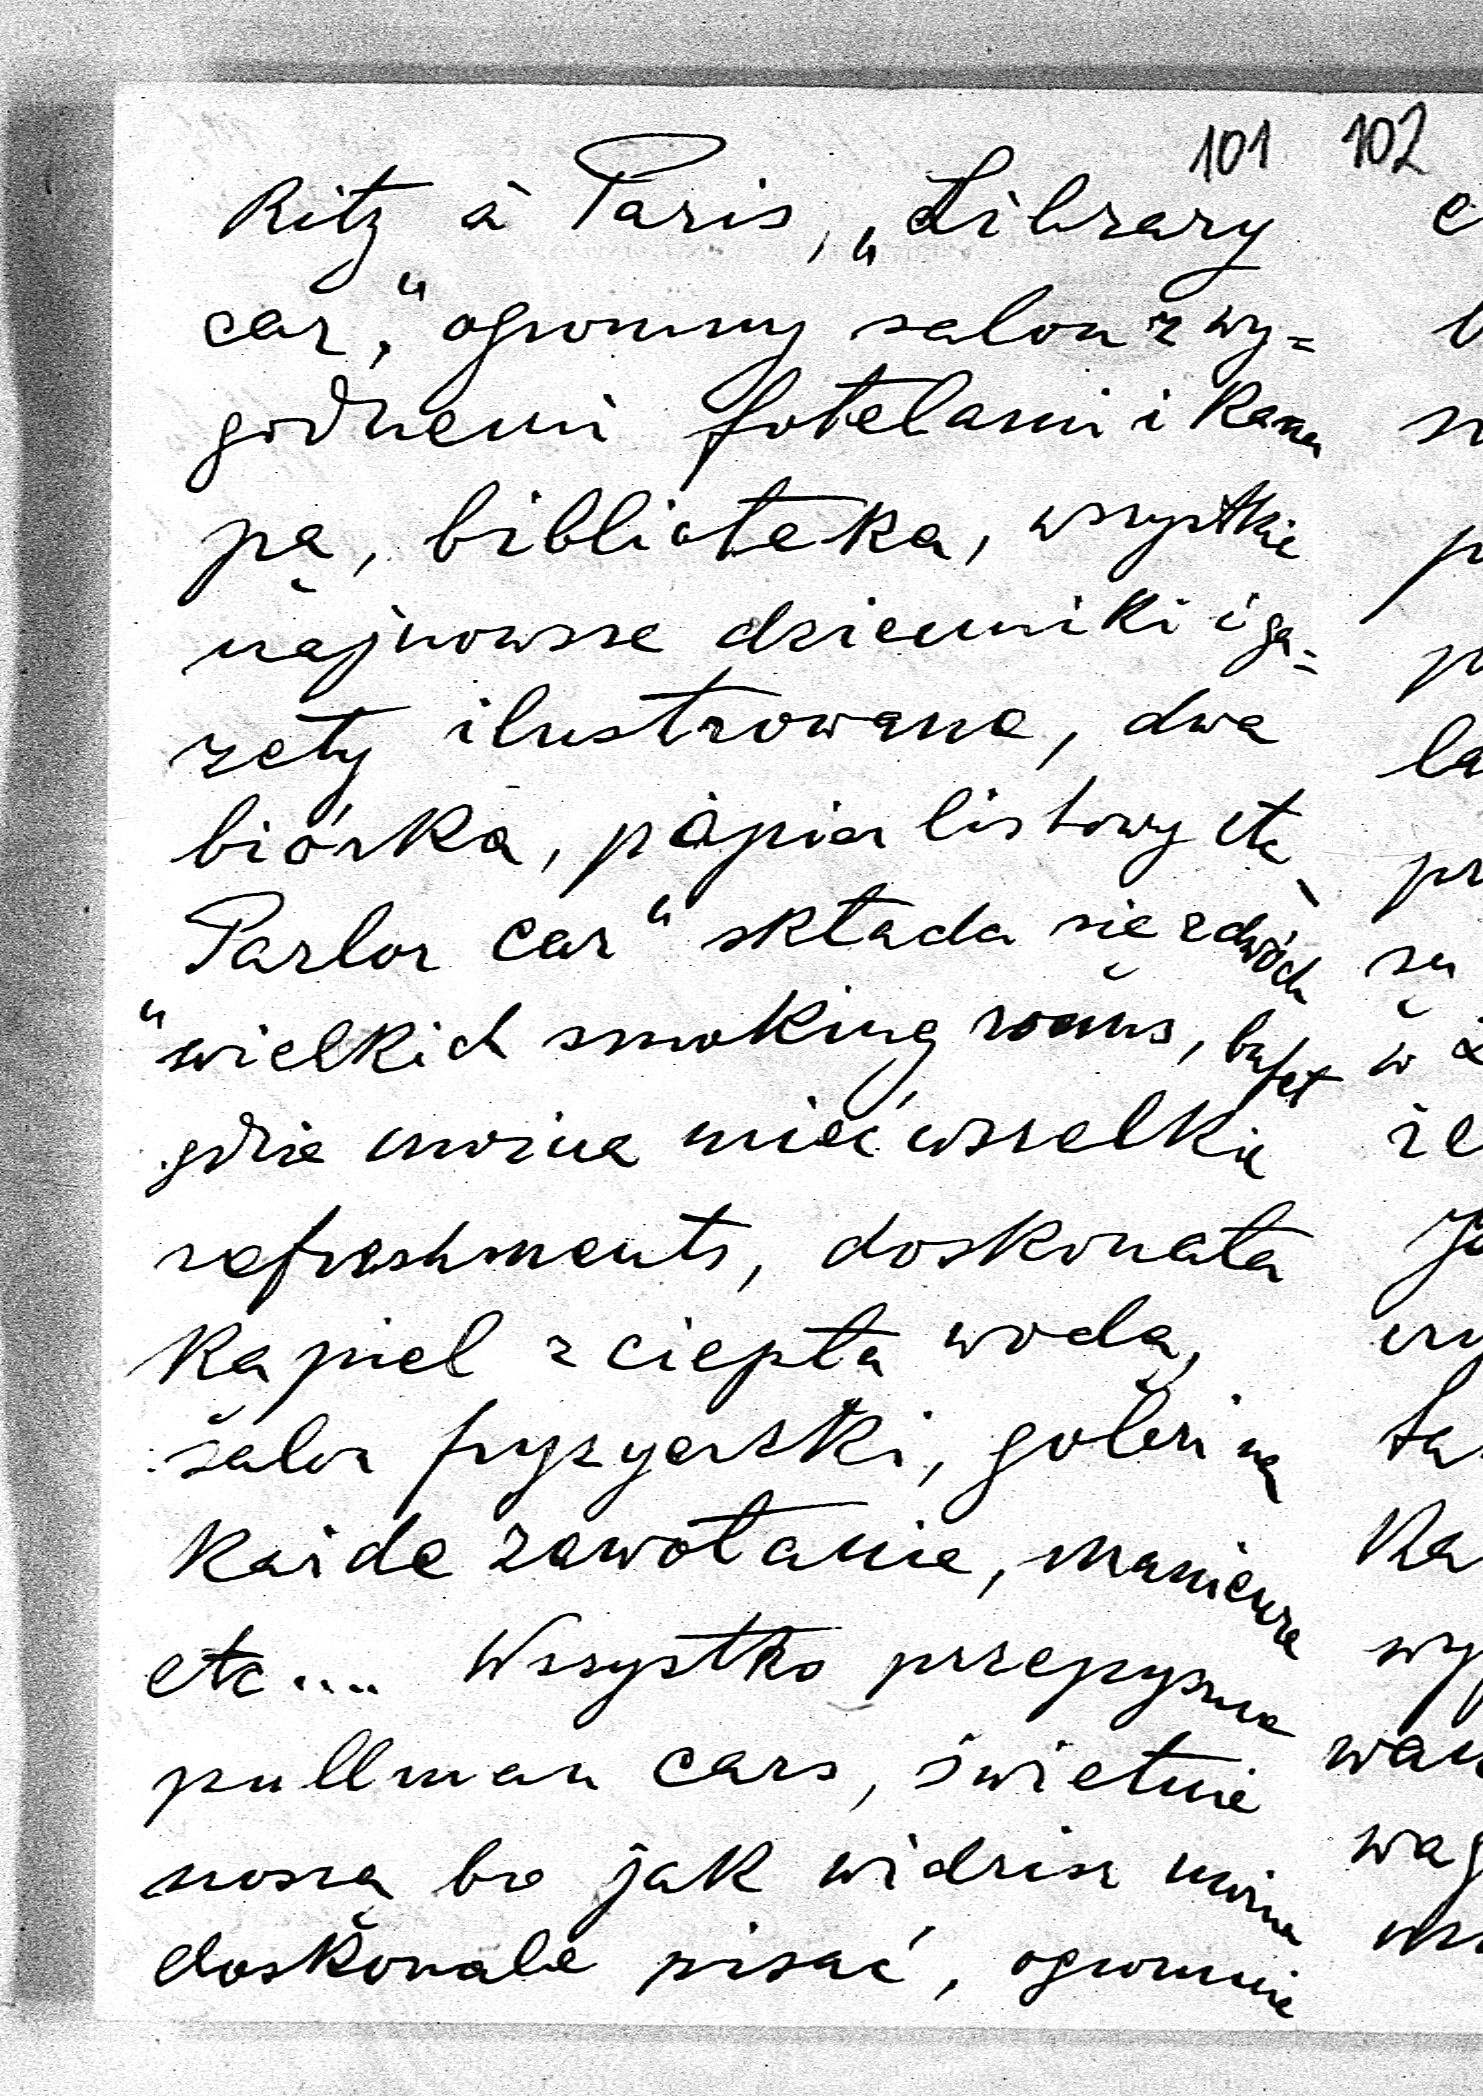 101 102
Ritz à Paris, „Library
car,“ ogromny salon z wy=
godnemi fotelami i kana
pą, biblioteka, wszystkie
najnowsze dzienniki i ga=
zety ilustrowane, dwa
biórka, papier listowy etc
Parlor car“ składa się z dwóch
„wielkich smoking rooms, bufet
gdzie można mieć wszelkie
refreshments, doskonała
kąpiel z ciepłą wodą,
salon fryzyerski, goleni na
każde zawołanie, manicure
etc.... Wszystko przepyszne
pullman cars, świetnie
noszą bo jak widzisz można
doskonale pisać, ogromnie